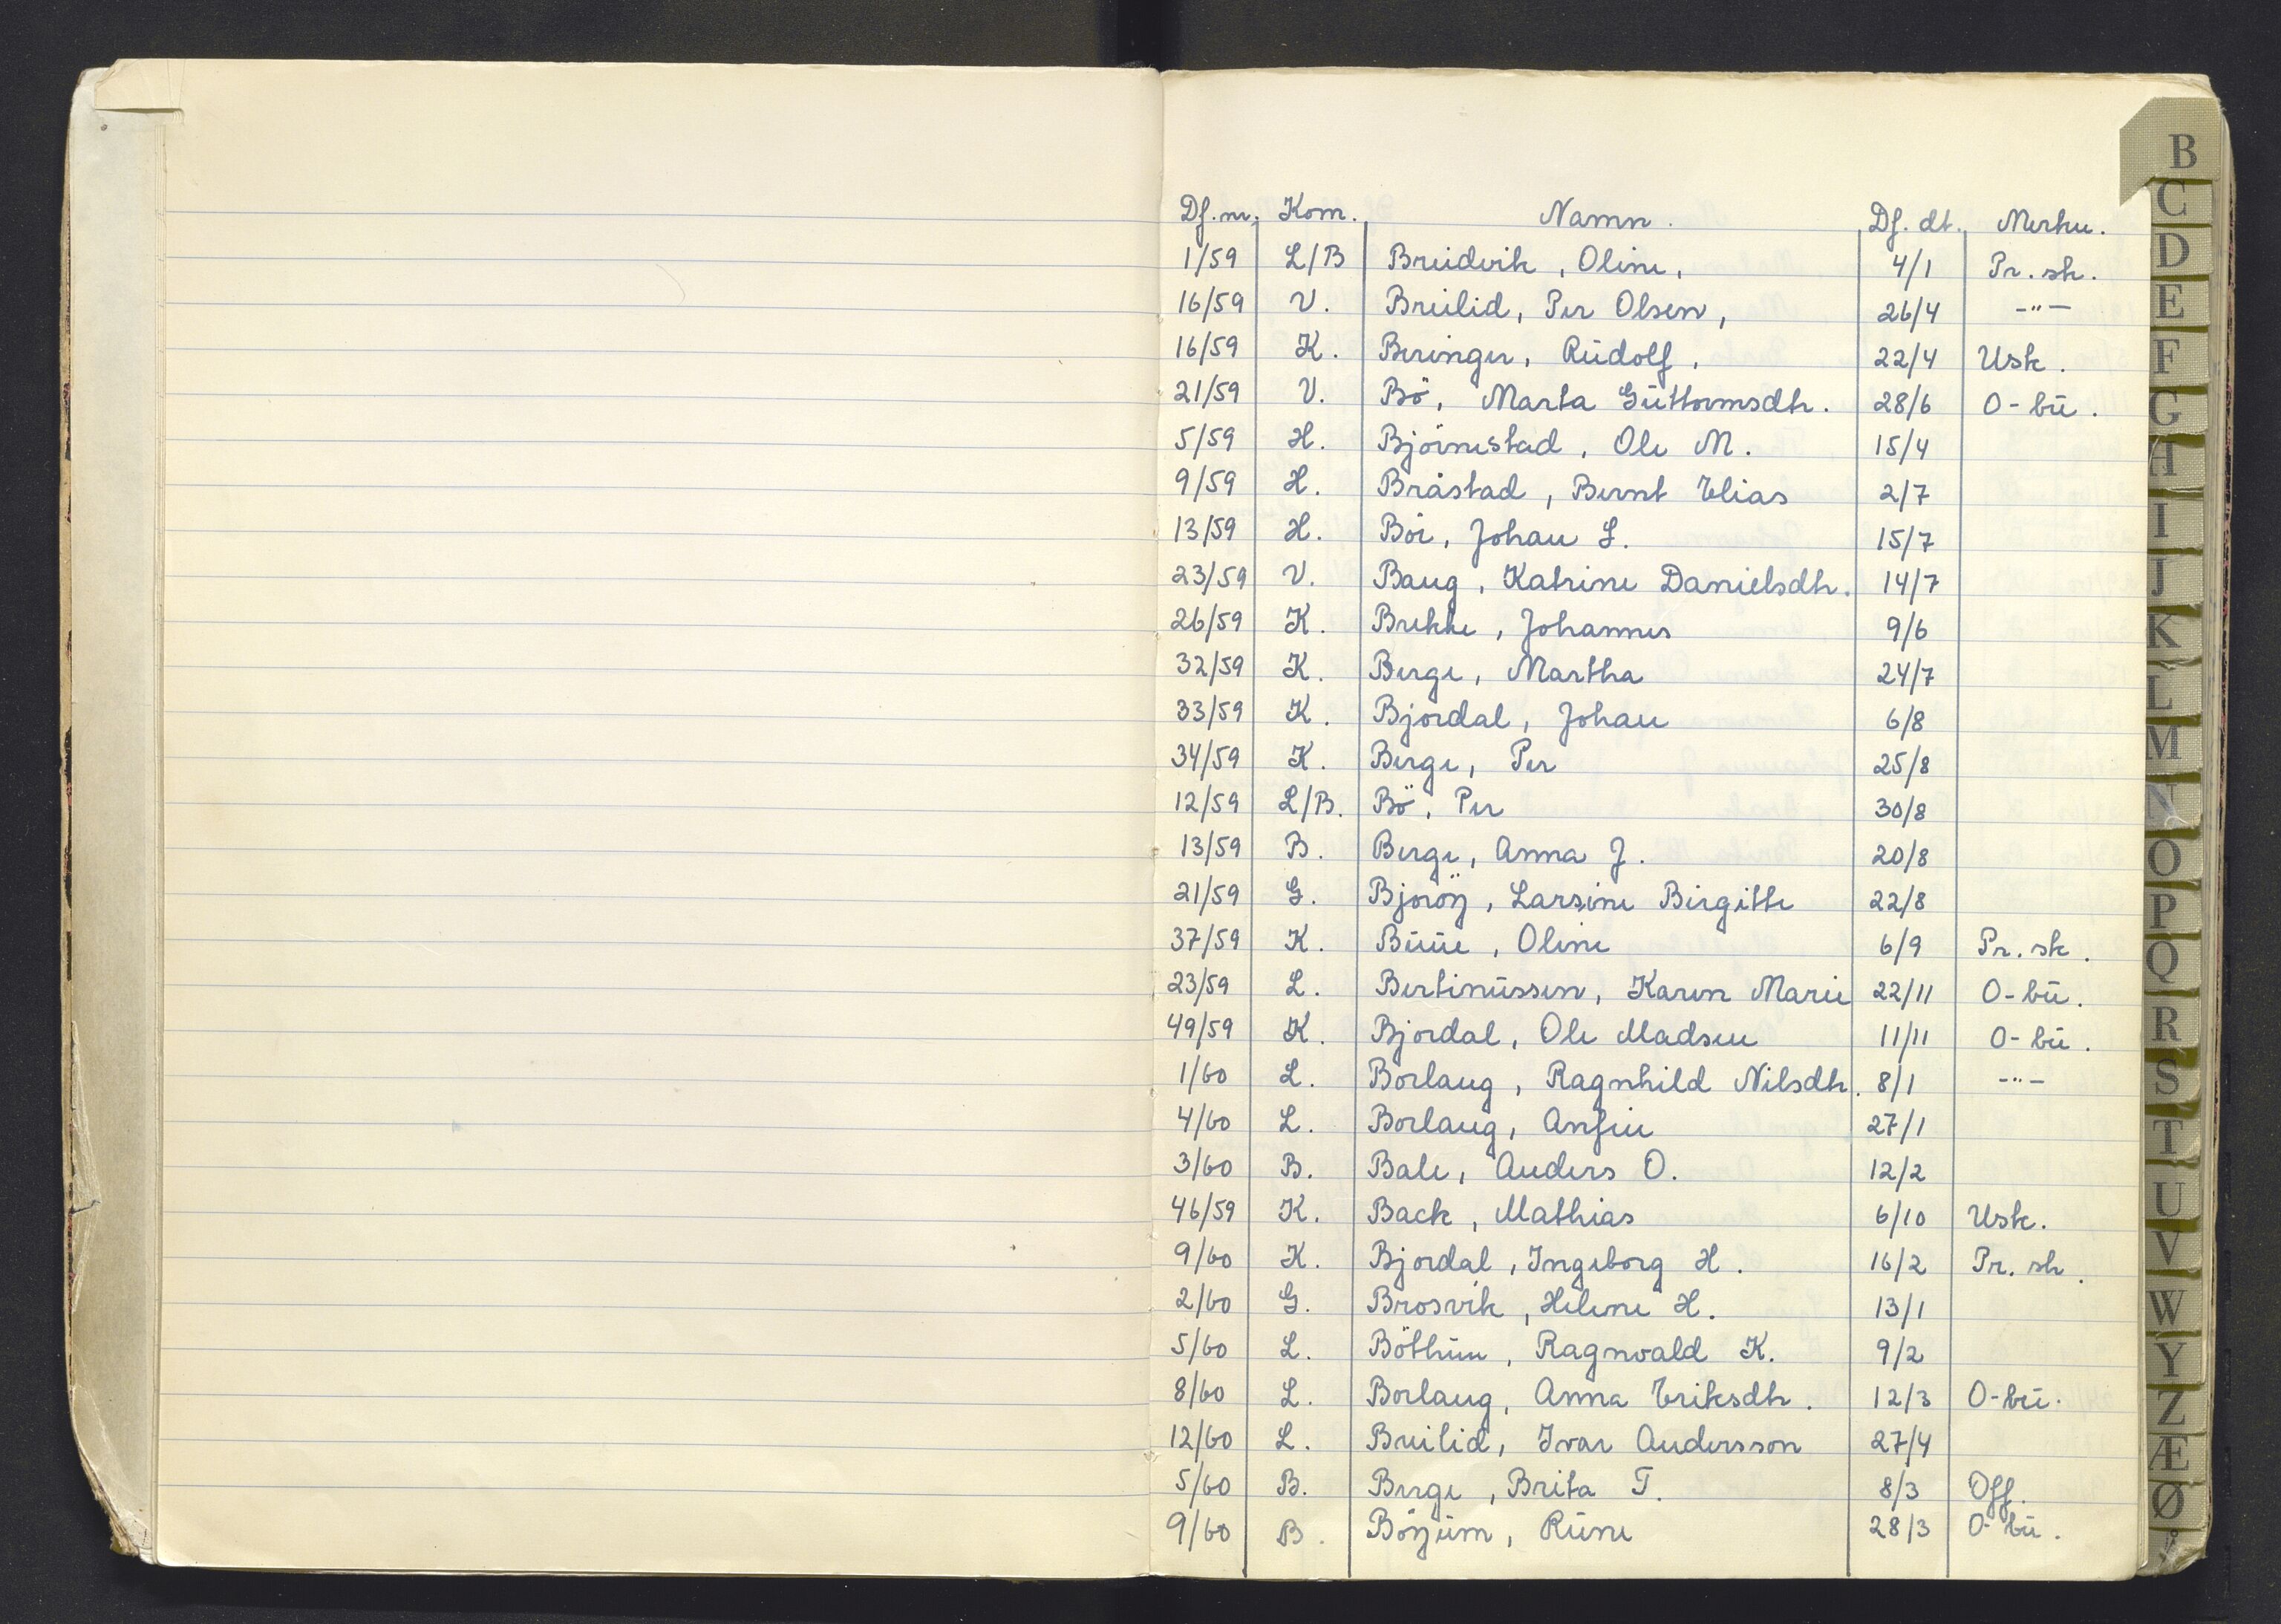 Df.nr. Kom. Namn. Df. dt. Merkn.
1/59 L/B Breidvik, Oline, 4/1 Pr. sk.
16/59 V. Breilid, Per Olsen, 26/4 -"-
16/59 K. Beringer, Rudolf, 22/4 Usk.
21/59 V. Bö, Marta Guttormsdtr. 28/6 O-bu.
5/59 H. Björnestad, Ole M. 15/4
9/59 H. Bråstad, Bernt Elias 2/7
13/59 H. Böe, Johan L. 15/7
23/59 V. Baug, Katrine Danielsdtr. 14/7
26/59 K. Brekke, Johannes 9/6
32/59 K. Berge, Martha 24/7
33/59 K. Bjordal, Johan 6/8
34/59 K. Berge, Per 25/8
12/59 L/B. Bö, Per 30/8
13/59 B. Berge, Anna J. 20/8
21/59 G. Bjoröy, Larsine Birgitte 22/8
37/59 K. Bueie, Oline 6/9 Pr. sk.
23/59 L. Bertinussen, Karen Marie 22/11 O-bu.
49/59 K. Bjordal, Ole Madsen 11/11 O-bu.
1/60 L. Borlaug, Ragnhild Nilsdtr. 8/1 -"-
4/60 L. Borlaug, Anfin 27/1
3/60 B. Bale, Anders O. 12/2
46/59 K. Back, Mathias 6/10 Usk.
9/60 K. Bjordal, Ingeborg H. 16/2 Pr. sk.
2/60 G. Brosvik, Helene H. 13/1
5/60 L. Böthun, Ragnvald K. 9/2
8/60 L. Borlaug, Anna Eriksdtr. 12/3 O-bu.
12/60 L. Breilid, Ivar Andersson 27/4
5/60 B. Berge, Brita T. 8/3 Off.
9/60 B. Böyum, Rune 28/3 O-bu.
B
C
D
E
F
G
H
I
J
K
L
M
N
O
P
Q
R
S
T
U
V
W
Y
Z
Æ
Ø